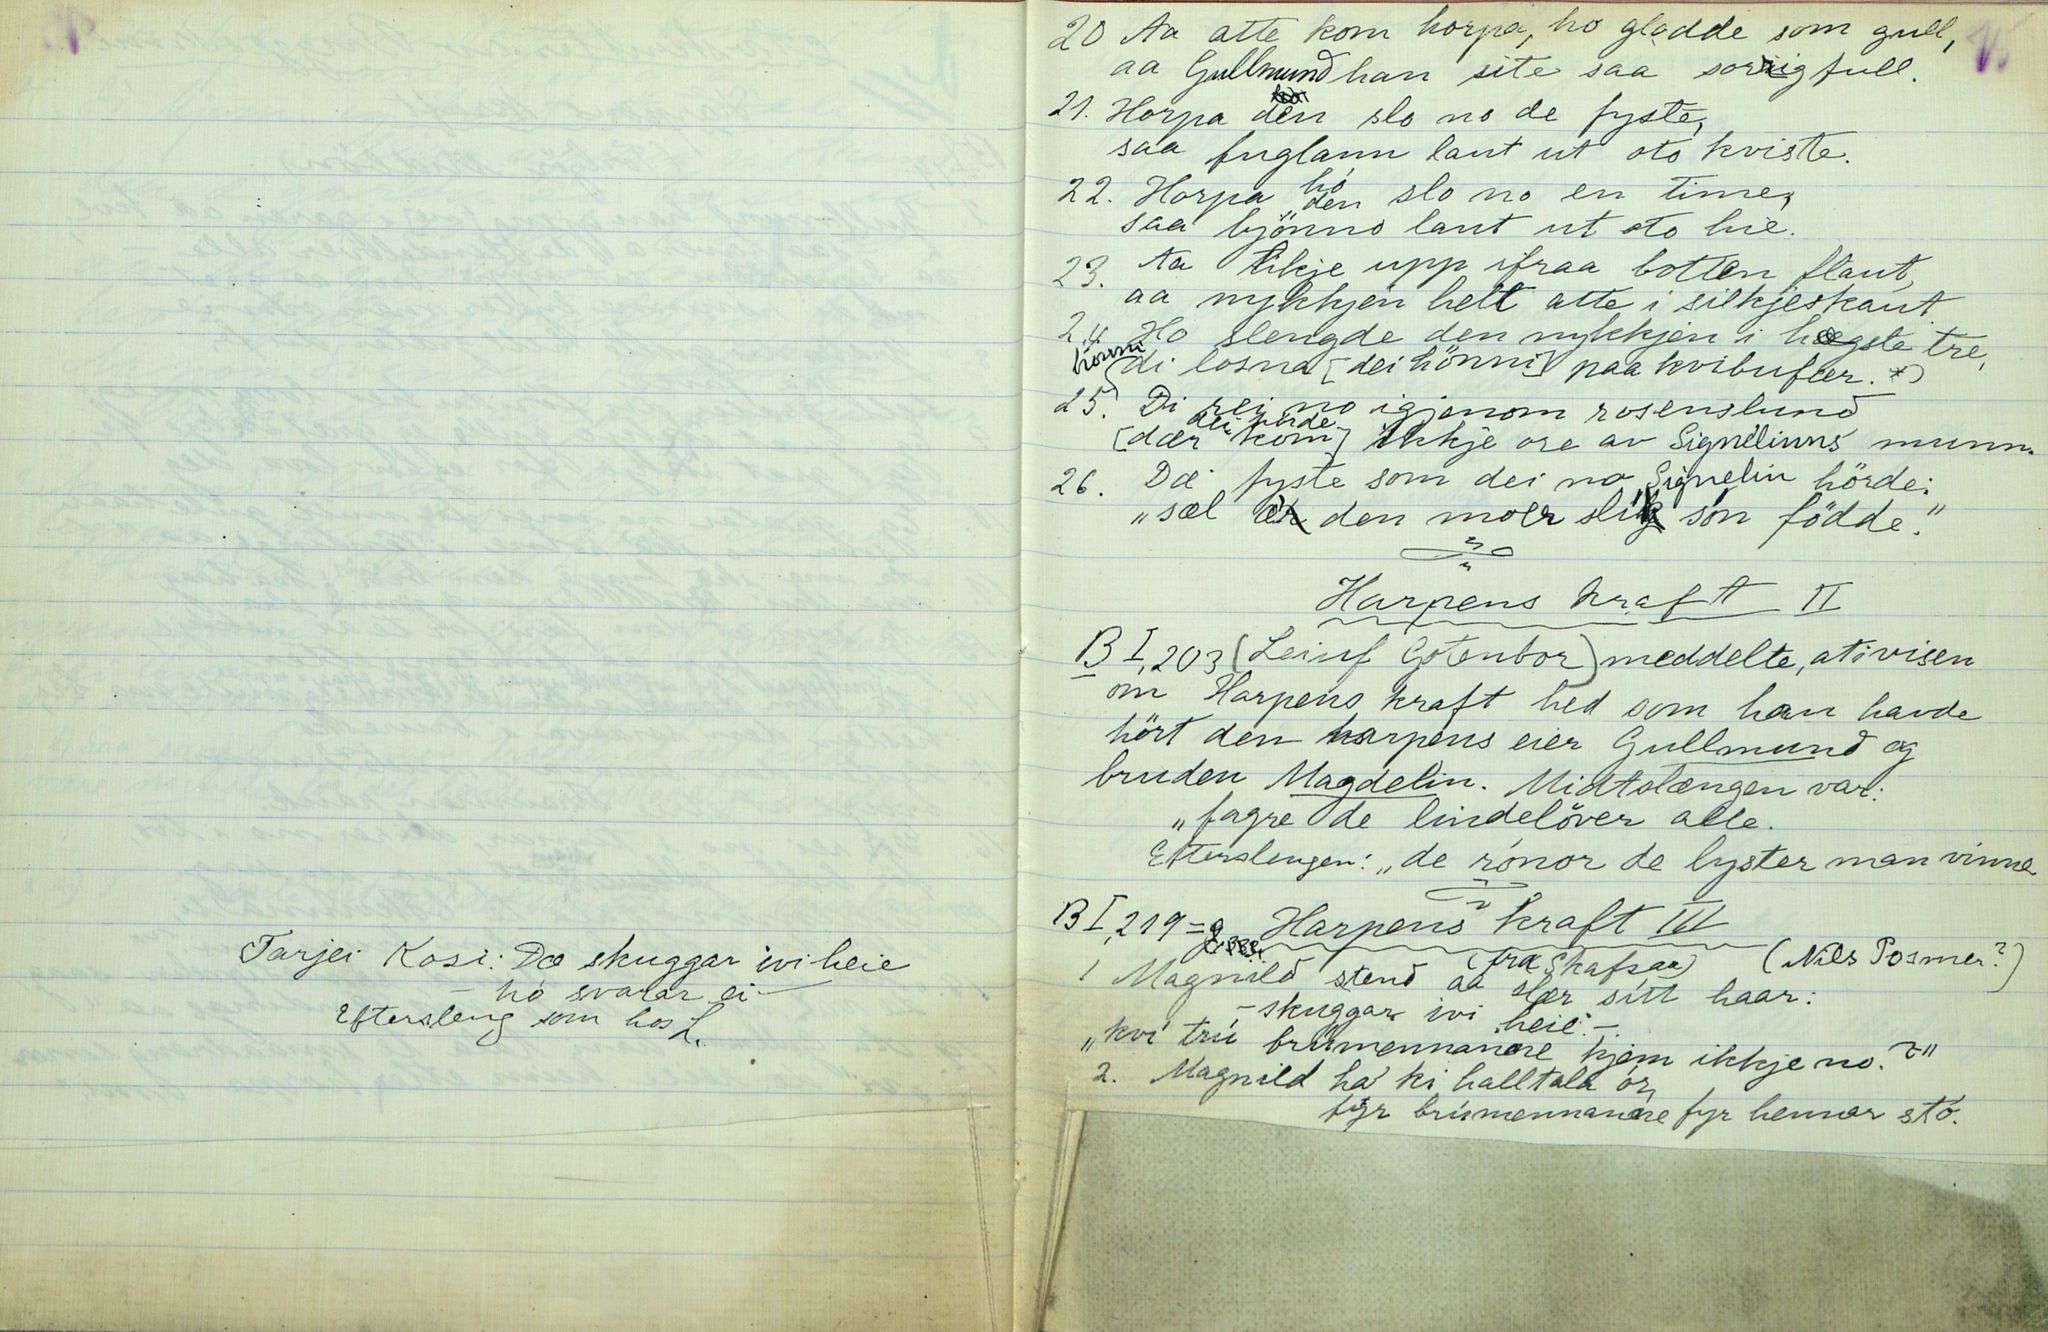 Tarjei Kosi: Dæ skuggar ivi heie
– hó svarar ei –
Eftersleng som hos L.
20 Aa atte kom horpa, ho glødde som gull,
aa Gullmund han site saa sorrigfull.
21. Horpa den slo no de fyste,
saa fuglann laut ut oto kviste.
hó
22. Horpa den slo no en time,
saa bjönno laut ut oto hie.
23. Aa likje upp ifraa botten flaut,
aa nykkjen helt atte i silkjeskaut
24 Ho slengde den nykkjen i høgste tre,
honni
di losna [dei hönni] paa kvibufær. *)
25. Di rei no igjenom rosenslund
dei hörde
[dær kom] ikkje ore av Signeliuns munn.
26. Dæ fyste som dei no Signelin hörde:
„sæl den moer slik són födde."
Harpens kraft II
B I, 203 (Leiuf Gotenbor) meddelte, at i visen
om Harpens kraft hed som han havde
hört den harpens eier Gullmund og
bruden Magdelin. Midtslængen var:
„fagre de lindelöver alle.
Efterslengen: „de rónor de lyster man vinne
B I, 219=a Harpens kraft III
(fra Skafsaa) (Nils Posmer?)
1 Magnild stend aa slær sitt haar:
– skuggar ivi heie –
„kví trú brúmennanere kjem ikkje no?"
2. Magnild ha' ki halltala ór,
fyr brúmennanere fyr hennar stó.